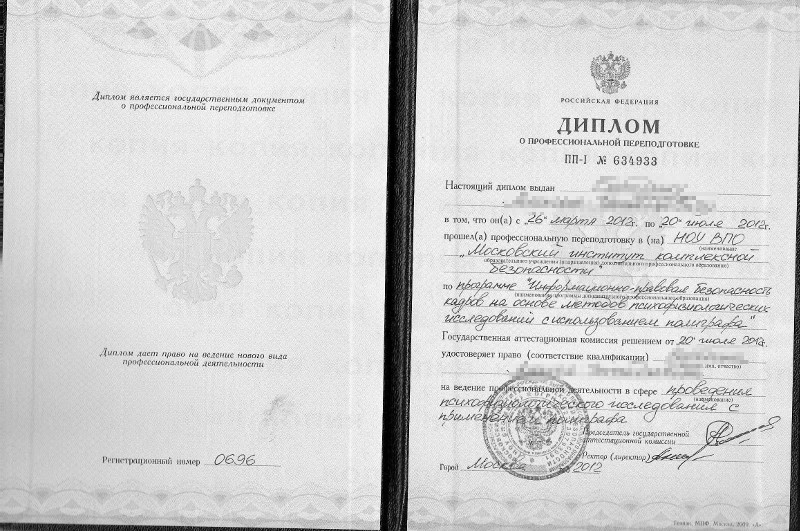 Диплом является государственным документом
о профессиональной переподготовке
Диплом дает право на ведение нового вида
профессиональной деятельности
Регистрационный номер 0696
РОССИЙСКАЯ ФЕДЕРАЦИЯ
ДИПЛОМ
О ПРОФЕССИОНАЛЬНОЙ ПЕРЕПОДГОТОВКЕ
ПП-I № 634933
Настоящий диплом выдан
в том, что он(а) с „26" марта 2012г. по „20" июля 2012г.
прошел(а) профессиональную переподготовку в (на) НОУ ВПО
(наименование)
„Московский институт комплексной
образовательного учреждения (подразделения) дополнительного профессионального образования)
безопасности"
по программе "Информационно-правовая безопасность
(наименование программы дополнительного профессионального образования)
кадров на основе методов психофизиологических
исследований с использованием полиграфа"
Государственная аттестационная комиссия решением от „20" июля 2012г.
удостоверяет право (соответствие квалификации)
имя, отчество)
на ведение профессиональной деятельности в сфере проведения
(наименование)
психофизиологического исследования с
применением полиграфа
Председатель государственной
аттестационной комиссии
Ректор (директор)
Город Москва 2012